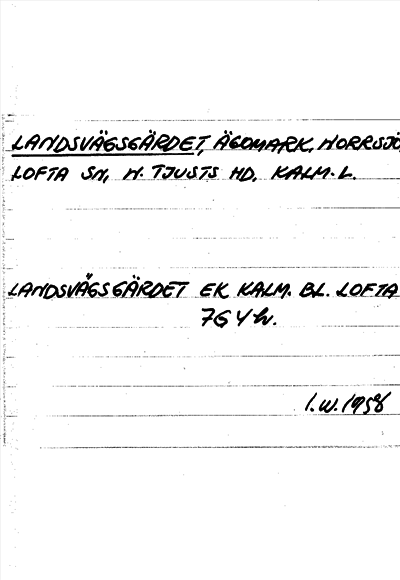 LANDSVÄGSGÄRDET, ÄGOMARK, NORRSJÖ,
LOFTA SN, N. TJUSTS HD, KALM. L.
LANDSVÄGSGÄRDET EK KALM. BL. LOFTA
7G4h.
I.W. 1958